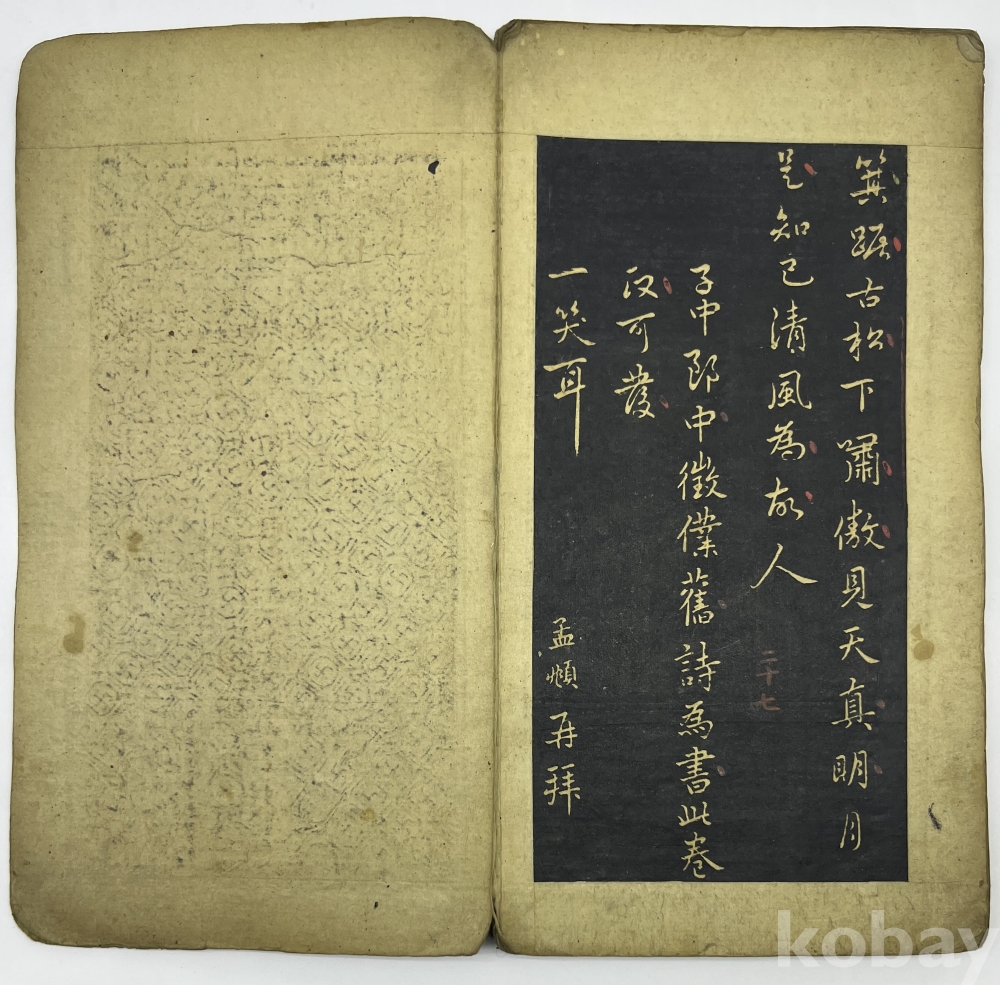 箕踞古松下嘯傲見天真明月
是知己清風為故人
二十七
子中郎中徵僕舊詩為書此卷
可發
一笑耳
孟頫再拜
kobay